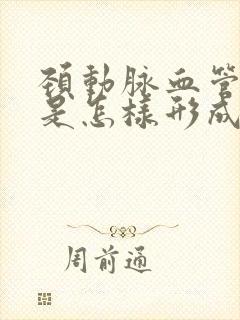 頸動脉血管
是怎樣形成
周前通